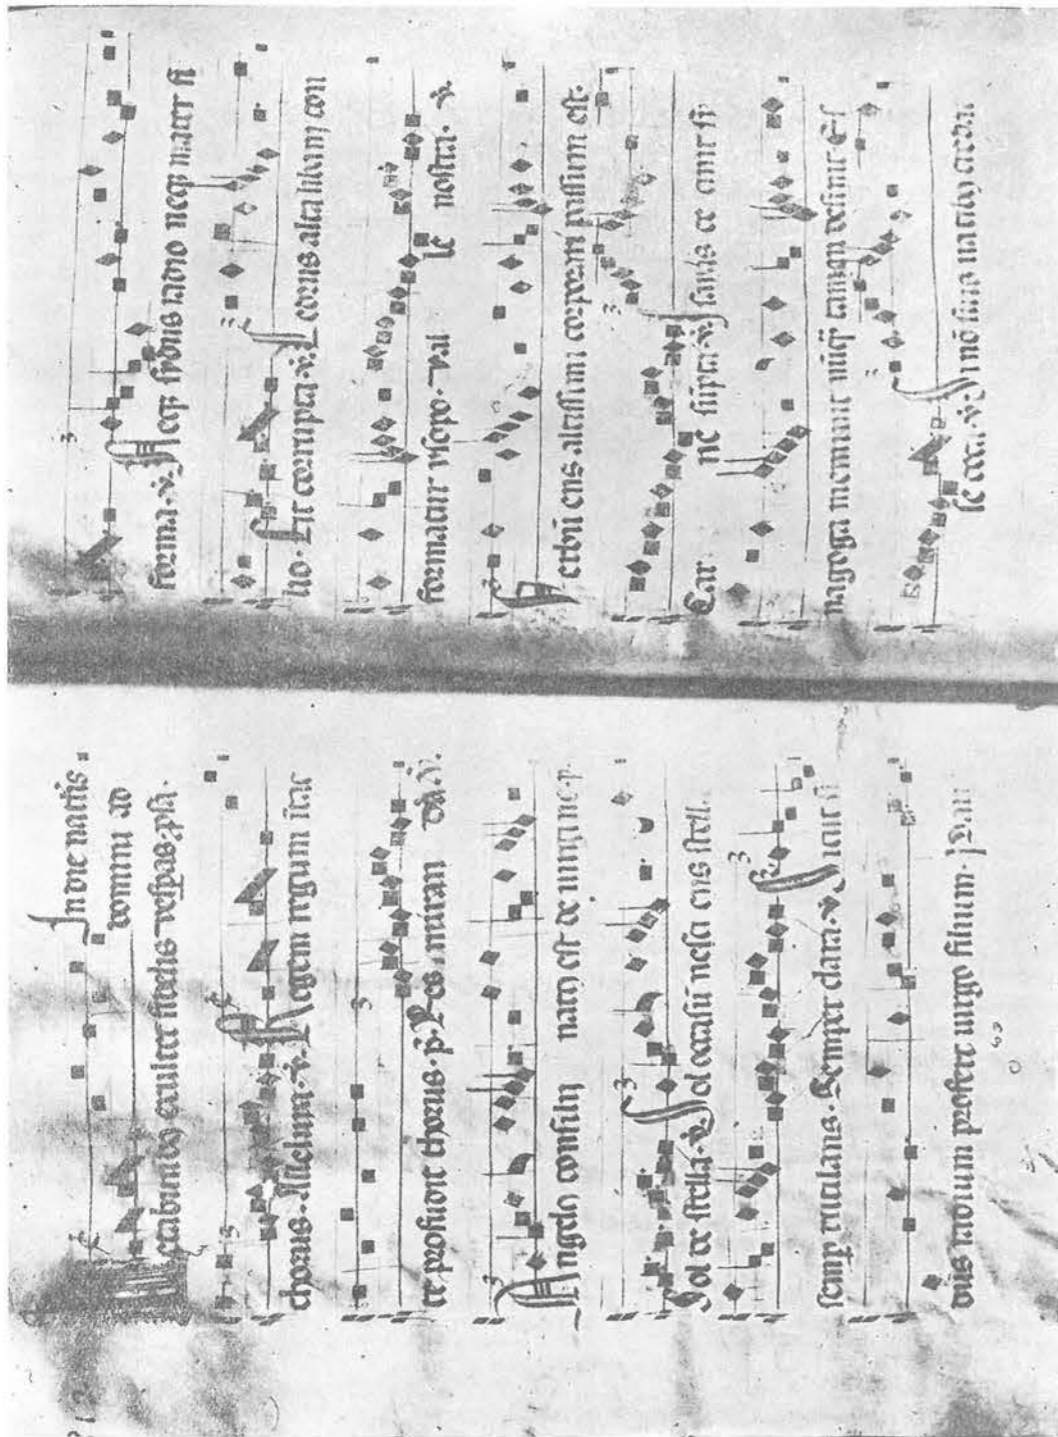 In die natiis
domini ad
etabund9 exultet fidelis vespas. psa.
chorus. Alleluia. v. Regem regum itac
te profudit thorus. ps. Res miran da. v.
Angel9 consilii nat9 est de virgine. p.
Sol de stella. v. Sol occasu nesci ens stell.
semp rutilans. Semper clara. v. Sicut si
dus radium profert virgo filium. Pari
forma. v. Neq3 sydus radio neq3 mater fi
lio. Fit corrupta. v. Cedrus alta libani con
formatur ysopo. val le nostra. v.
Verbu ens altissimi corporari passum est.
Car ne supta. v. Isaias ce cinit si
nagoga meminit nuq3 tamen desinit. Es
se ceca. v. Si no suis vatib9 credat